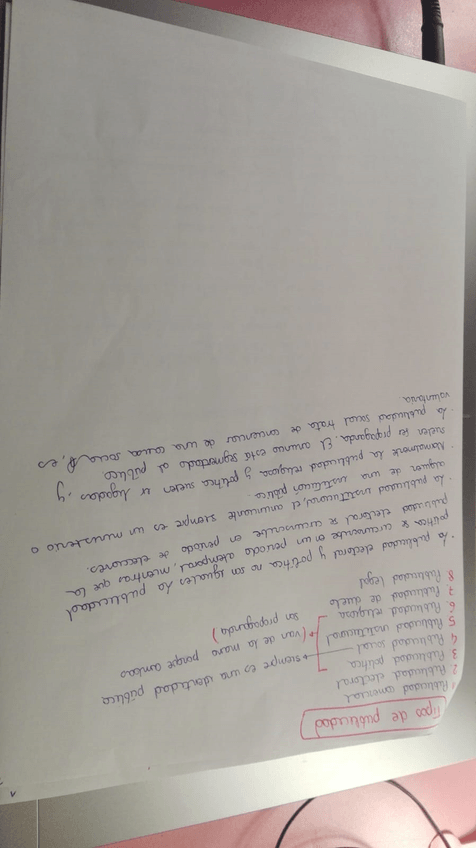 Tipos de publicidad
1 Publicidad comercial
2 Publicidad electoral
3 Publicidad política
4 Publicidad social → siempre es una identidad pública
5 Publicidad institucional → (van de la mano porque ambas
6 Publicidad religiosa son propaganda)
7 Publicidad de duelo
8 Publicidad legal
· La publicidad electoral y política no son iguales. La publicidad
política se circunscribe en un periodo atemporal, mientras que la
publicidad electoral se circunscribe en periodo de elecciones.
· La publicidad institucional, el anunciante siempre es un ministerio o
alguien de una institución pública.
· Normalmente la publicidad religiosa y política suelen ir ligadas, y
suelen ser propaganda. El anuncio está segmentado al público
· La publicidad social trata de concienciar de una causa social, es
voluntaria.